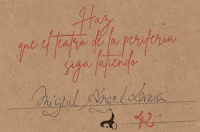 Haz
que el teatro de la periferia
siga latiendo
Miguel Ángel
42